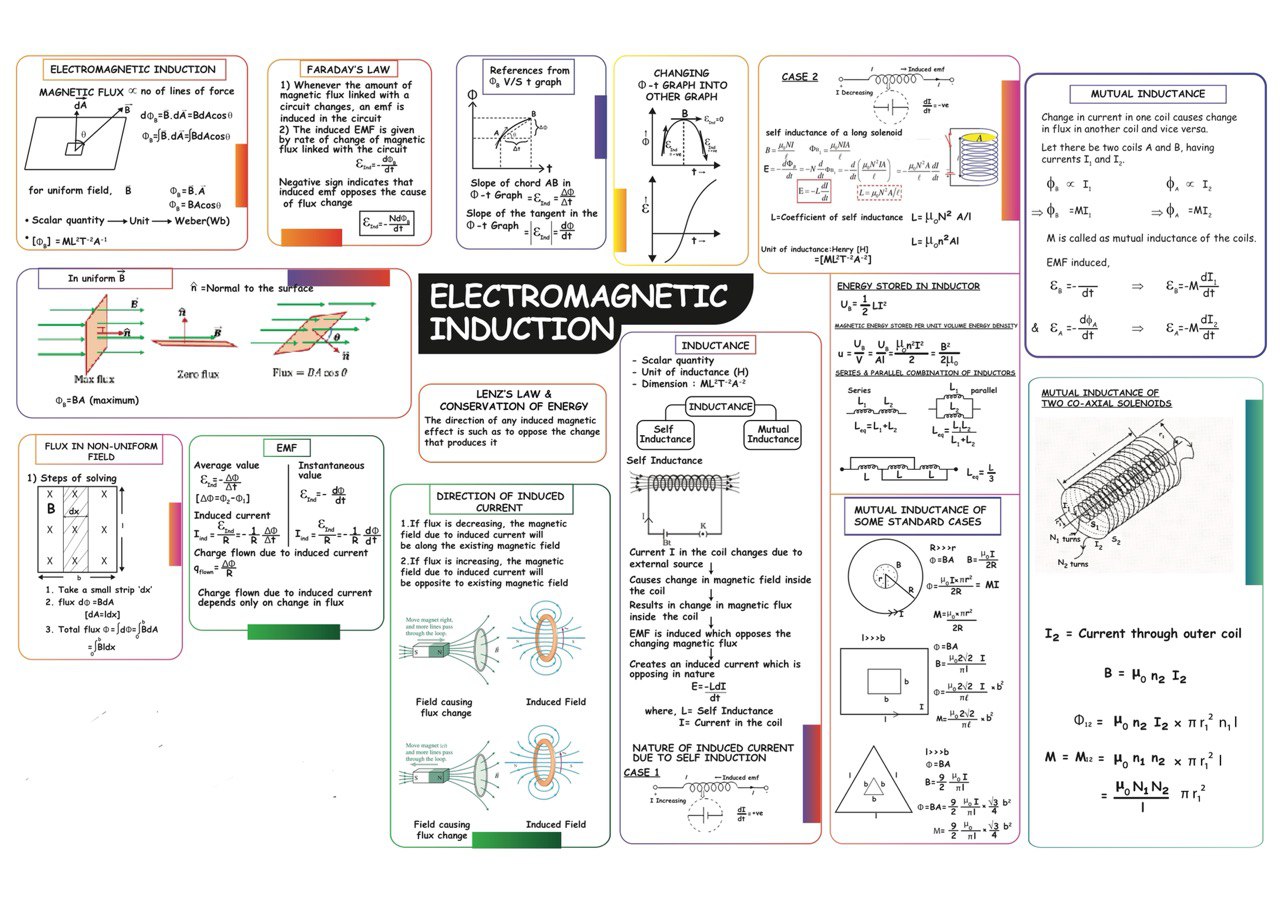 ELECTROMAGNETIC INDUCTION
MAGNETIC FLUX ∝ no of lines of force
dA
B
θ
dΦ_B=B.dA=BdAcosθ
Φ_B=∫B.dA=∫BdAcosθ
for uniform field, B
Φ_B=B.A
Φ_B=BAcosθ
• Scalar quantity → Unit → Weber(Wb)
• [Φ_B] =ML²T⁻²A⁻¹
FARADAY'S LAW
1) Whenever the amount of
magnetic flux linked with a
circuit changes, an emf is
induced in the circuit
2) The induced EMF is given
by rate of change of magnetic
flux linked with the circuit
ε_Ind=-dΦ_B/dt
Negative sign indicates that
induced emf opposes the cause
of flux change
ε_Ind=-NdΦ_B/dt
References from
Φ_B V/S t graph
Φ
A
B
ΔΦ
Δt
t
Slope of chord AB in
Φ -t Graph =ε_Ind=ΔΦ/Δt
Slope of the tangent in the
Φ -t Graph =|ε_Ind|=dΦ/dt
CHANGING
Φ -t GRAPH INTO
OTHER GRAPH
Φ
B
ε_Ind=0
ε_Ind=-ve
ε_Ind=+ve
t→
ε
t→
CASE 2
I
← Induced emf
I
I Decreasing
dI/dt=-ve
self inductance of a long solenoid
B=μ₀NI/ℓ Φn₁=μ₀NIA/ℓ
E=-dΦ_B/dt=-N d/dt Φn₁=-d/dt(μ₀N²IA/ℓ)=-μ₀N²A/ℓ dI/dt
E=-L dI/dt
L=μ₀N²A/ℓ
A
L=Coefficient of self inductance L=μ₀N² A/l
L=μ₀n²Al
Unit of inductance:Henry [H]
=[ML²T⁻²A⁻²]
MUTUAL INDUCTANCE
Change in current in one coil causes change
in flux in another coil and vice versa.
Let there be two coils A and B, having
currents I₁ and I₂.
ϕ_B ∝ I₁ ϕ_A ∝ I₂
⇒ϕ_B =MI₁ ⇒ϕ_A =MI₂
M is called as mutual inductance of the coils.
EMF induced,
ε_B=-/dt ⇒ ε_B=-M dI₁/dt
& ε_A=-dϕ_A/dt ⇒ ε_A=-M dI₂/dt
In uniform B
n̂ =Normal to the surface
B
n̂
Max flux
n̂
B
Zero flux
B
θ
n̂
Flux = BA cos θ
Φ_B=BA (maximum)
ELECTROMAGNETIC
INDUCTION
LENZ'S LAW &
CONSERVATION OF ENERGY
The direction of any induced magnetic
effect is such as to oppose the change
that produces it
INDUCTANCE
- Scalar quantity
- Unit of inductance (H)
- Dimension : ML²T⁻²A⁻²
INDUCTANCE
Self
Inductance
Mutual
Inductance
Self Inductance
I
Bt
K
Current I in the coil changes due to
external source
Causes change in magnetic field inside
the coil
Results in change in magnetic flux
inside the coil
EMF is induced which opposes the
changing magnetic flux
Creates an induced current which is
opposing in nature
E=-LdI/dt
where, L= Self Inductance
I= Current in the coil
NATURE OF INDUCED CURRENT
DUE TO SELF INDUCTION
CASE 1
I
← Induced emf
I
I Increasing
dI/dt=+ve
ENERGY STORED IN INDUCTOR
U_B=1/2 LI²
MAGNETIC ENERGY STORED PER UNIT VOLUME ENERGY DENSITY
u = U_B/V = U_B/Al = μ₀n²I²/2 = B²/2μ₀
SERIES & PARALLEL COMBINATION OF INDUCTORS
Series
L₁ L₂
L_eq=L₁+L₂
parallel
L₁
L₂
L_eq=L₁L₂/L₁+L₂
L L L
L_eq=L/3
MUTUAL INDUCTANCE OF
SOME STANDARD CASES
B
r
R
I
R>>>r
Φ=BA B=μ₀I/2R
Φ=μ₀I×πr²/2R = MI
M=μ₀πr²/2R
l>>>b
b
b
I
l
Φ=BA
B=μ₀2√2 I/πl
Φ=μ₀2√2 I/πℓ ×b²
M=μ₀2√2/πℓ ×b²
l
l
b
b
b
l
l>>>b
Φ=BA
B=9/2 μ₀I/πl
Φ=BA=9/2 μ₀I/πl × √3/4 b²
M=9/2 μ₀I/πl × √3/4 b²
MUTUAL INDUCTANCE OF
TWO CO-AXIAL SOLENOIDS
l
r₁
I₁
S₁
N₁ turns
I₂
S₂
N₂ turns
I₂ = Current through outer coil
B = μ₀ n₂ I₂
Φ₁₂ = μ₀ n₂ I₂ × π r₁² n₁ l
M = M₁₂ = μ₀ n₁ n₂ × π r₁² l
= μ₀ N₁ N₂/l π r₁²
FLUX IN NON-UNIFORM
FIELD
1) Steps of solving
X X X
B dx l
X X
X X X
b
1. Take a small strip 'dx'
2. flux dΦ =BdA
[dA=ldx]
3. Total flux Φ=∫dΦ=∫₀ᵇBdA
=∫₀ᵇBldx
EMF
Average value
ε_Ind=-ΔΦ/Δt
[ΔΦ=Φ₂-Φ₁]
Instantaneous
value
ε_Ind=- dΦ/dt
Induced current
I_ind=ε_Ind/R=-1/R ΔΦ/Δt
I_ind=ε_Ind/R=-1/R dΦ/dt
Charge flown due to induced current
q_flown=ΔΦ/R
Charge flown due to induced current
depends only on change in flux
DIRECTION OF INDUCED
CURRENT
1.If flux is decreasing, the magnetic
field due to induced current will
be along the existing magnetic field
2.If flux is increasing, the magnetic
field due to induced current will
be opposite to existing magnetic field
Move magnet right,
and more lines pass
through the loop.
S N
B
Field causing
flux change
Induced Field
Move magnet left
and more lines pass
through the loop.
S N
B
Field causing
flux change
Induced Field